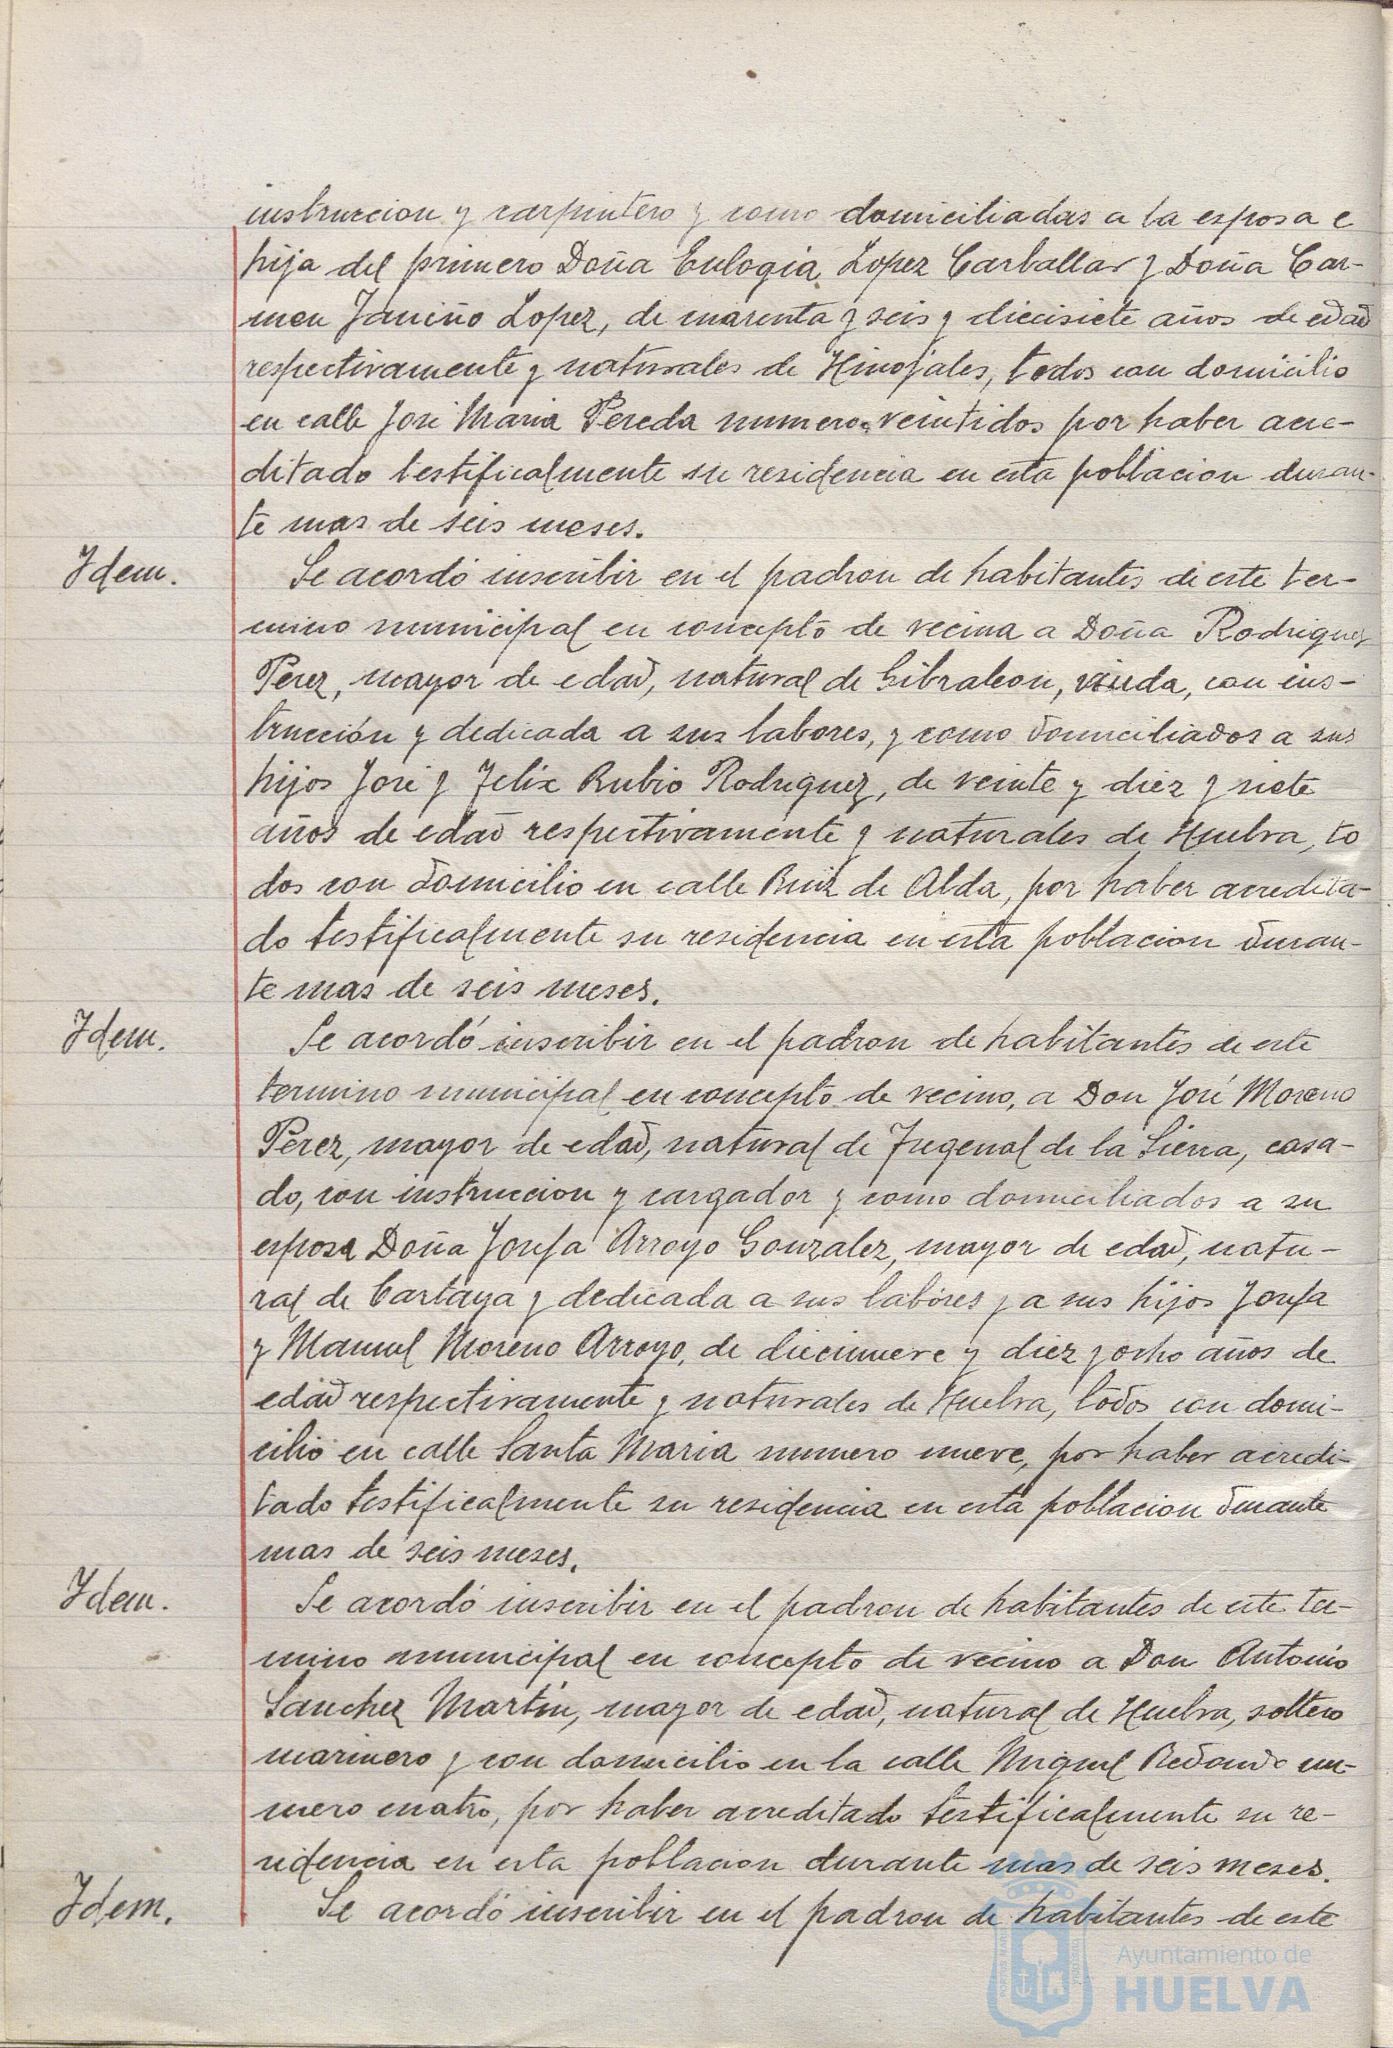 instruccion y carpintero y como domiciliadas a la esposa e
hija del primero Doña Eulogia Lopez Carballar y Doña Car-
men Janiño Lopez, de cuarenta y seis y diecisiete años de edad
respectivamente y naturales de Hinojales, todos con domicilio
en calle José Maria Pereda numero veintidos por haber acre-
ditado testificalmente su residencia en esta poblacion duran-
te mas de seis meses.
Idem.
Se acordó inscribir en el padron de habitantes de este ter-
mino municipal en concepto de vecina a Doña Rodriguez
Perez, mayor de edad, natural de Gibraleon, viuda, con ins-
trucción y dedicada a sus labores, y como domiciliados a sus
hijos José y Felix Rubio Rodriguez, de veinte y diez y siete
años de edad respectivamente y naturales de Huelva, to
dos con domicilio en calle Ruiz de Alda, por haber acredita-
do testificalmente su residencia en esta poblacion duran-
te mas de seis meses.
Idem.
Se acordó inscribir en el padron de habitantes de este
termino municipal en concepto de vecino, a Don José Moreno
Perez, mayor de edad, natural de Fregenal de la Sierra, casa-
do, con instruccion y cargador y como domiciliados a su
esposa Doña Josefa Arroyo Gonzalez, mayor de edad, natu-
ral de Cartaya y dedicada a sus labores y a sus hijos Josefa
y Manuel Moreno Arroyo, de diecinueve y diez y ocho años de
edad respectivamente y naturales de Huelva, todos con domi-
cilio en calle Santa Maria numero nueve, por haber acredi-
tado testificalmente su residencia en esta poblacion durante
mas de seis meses.
Idem.
Se acordó inscribir en el padron de habitantes de este ter-
mino municipal en concepto de vecino a Don Antonio
Sanchez Martin, mayor de edad, natural de Huelva, soltero
marinero y con domicilio en la calle Miguel Redondo nu-
mero cuatro, por haber acreditado testificalmente su re-
sidencia en esta poblacion durante mas de seis meses.
Idem.
Se acordó inscribir en el padron de habitantes de este
Ayuntamiento de
HUELVA